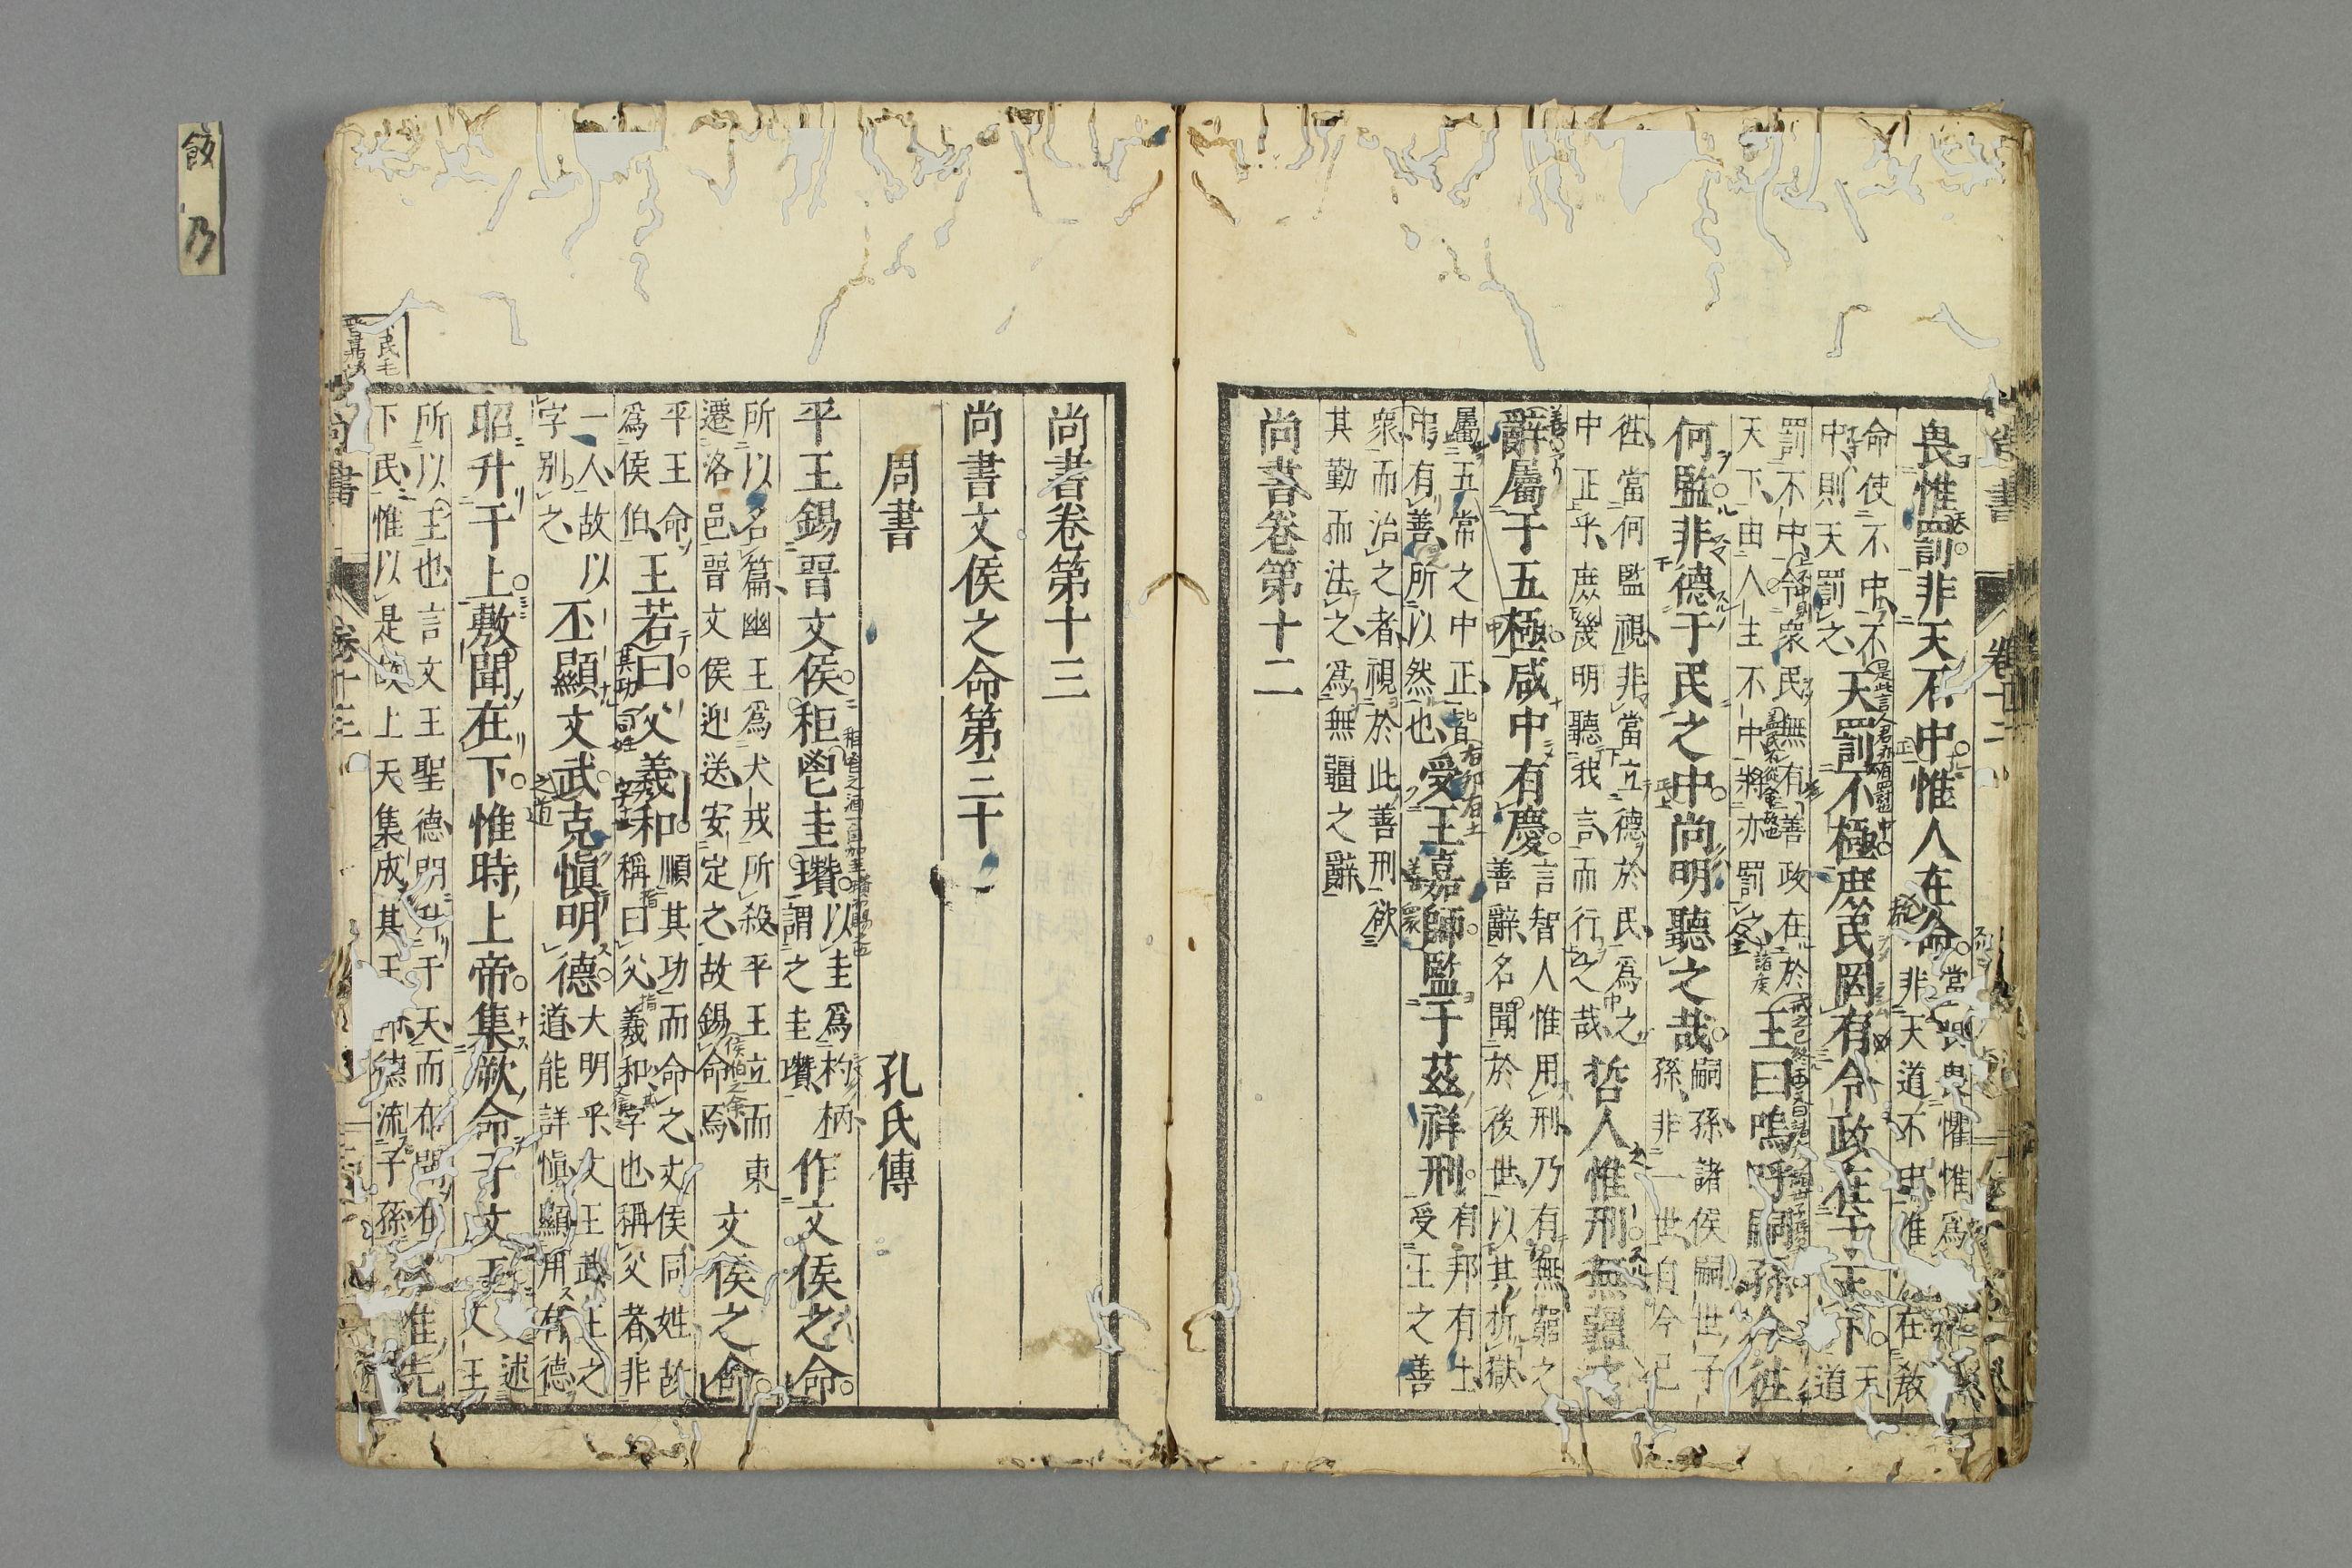 畏惟罰非天不中惟人在命
當畏懼惟爲
非天道不中惟在敎
命使不中不
中則天罰之
天罰不極庶民罔有令政在于天下
天
道
罰不中令衆民無有善政在於
天下由人主不中將亦罰之
王曰嗚呼嗣孫今往
何監非德于民之中尚明聽之哉
嗣孫諸侯嗣世子
孫非一世自今已
往當何監視非當立德於民爲之
中正乎庶幾明聽我言而行之哉
哲人惟刑無疆之
辭屬于五極咸中有慶
言智人惟用刑乃有無窮之
善辭名聞於後世以其折獄
屬五常之中正皆
中有善所以然也
受王嘉師監于茲祥刑
有邦有土
受王之善
衆而治之者視於此善刑欲
其勤而法之爲無疆之辭
尚書卷第十二
尚書卷第十三
尚書文侯之命第三十
周書
孔氏傳
平王錫晉文侯秬鬯圭瓚
以圭爲杓柄
謂之圭瓚
作文侯之命
所以名篇幽王爲犬戎所殺平王立而東
遷洛邑晉文侯迎送安定之故錫命焉
文侯之命
平王命
爲侯伯
王若曰父義和
順其功而命之文侯同姓故
稱曰父義和字也稱父者非
一人故以
字别之
丕顯文武克愼明德
大明乎文王武王之
道能詳愼顯用有德
昭升于上敷聞在下惟時上帝集厥命于文王
述
文王
所以王也言文王聖德明升于天而布聞在
下民惟以是故上天集成其王命德流子孫
惟先
尚書
卷十三
飯
乃